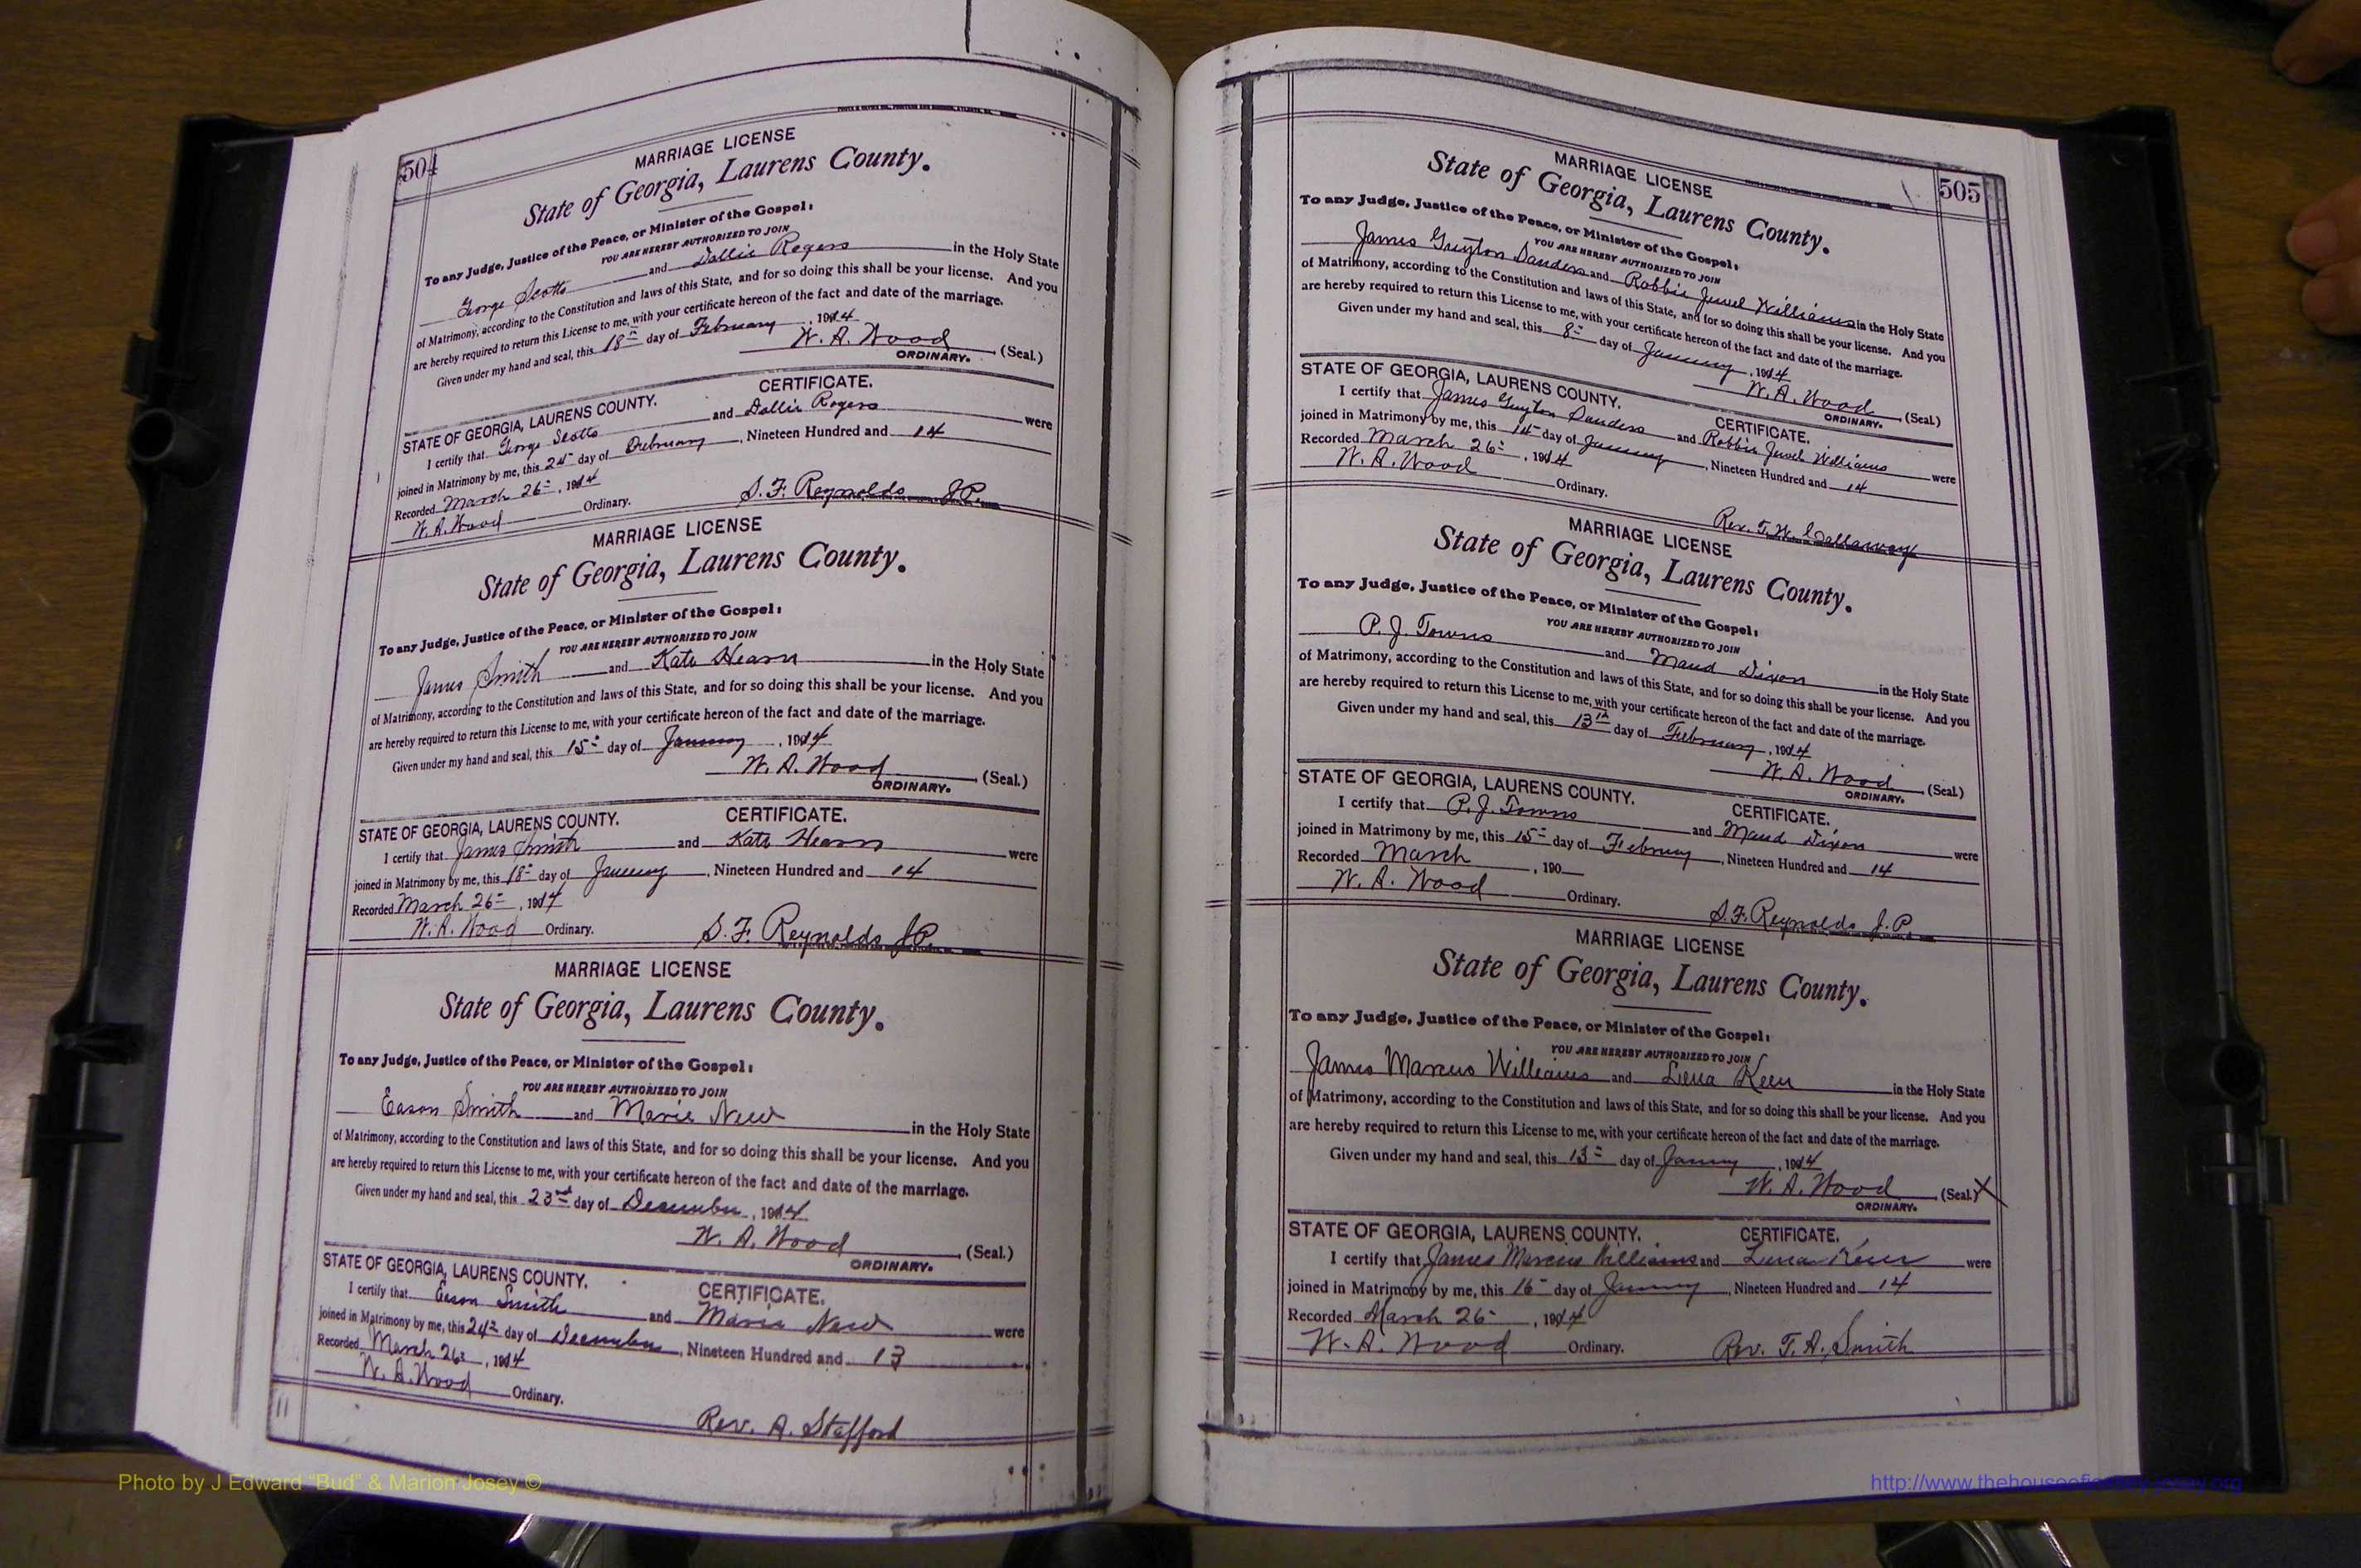 504
MARRIAGE LICENSE
State of Georgia, Laurens County.
To any Judge, Justice of the Peace, or Minister of the Gospel:
YOU ARE HEREBY AUTHORIZED TO JOIN
George Scotts and Dallie Rogers in the Holy State
of Matrimony, according to the Constitution and laws of this State, and for so doing this shall be your license. And you
are hereby required to return this License to me, with your certificate hereon of the fact and date of the marriage.
Given under my hand and seal, this 18th day of February, 1914
W. A. Wood (Seal.)
ORDINARY.
STATE OF GEORGIA, LAURENS COUNTY. CERTIFICATE.
I certify that George Scotts and Dallie Rogers were
joined in Matrimony by me, this day of February, Nineteen Hundred and 14
Recorded March 26, 1914
W. A. Wood Ordinary. S. F. Reynolds J.P.
MARRIAGE LICENSE
State of Georgia, Laurens County.
To any Judge, Justice of the Peace, or Minister of the Gospel:
YOU ARE HEREBY AUTHORIZED TO JOIN
James Smith and Kate Hearn in the Holy State
of Matrimony, according to the Constitution and laws of this State, and for so doing this shall be your license. And you
are hereby required to return this License to me, with your certificate hereon of the fact and date of the marriage.
Given under my hand and seal, this 15 day of January, 1914
W. A. Wood (Seal.)
ORDINARY.
STATE OF GEORGIA, LAURENS COUNTY. CERTIFICATE.
I certify that James Smith and Kate Hearn were
joined in Matrimony by me, this 18 day of January, Nineteen Hundred and 14
Recorded March 26, 1914
W. A. Wood Ordinary. S. F. Reynolds J.P.
MARRIAGE LICENSE
State of Georgia, Laurens County.
To any Judge, Justice of the Peace, or Minister of the Gospel:
YOU ARE HEREBY AUTHORIZED TO JOIN
Eason Smith and Marie New in the Holy State
of Matrimony, according to the Constitution and laws of this State, and for so doing this shall be your license. And you
are hereby required to return this License to me, with your certificate hereon of the fact and date of the marriage.
Given under my hand and seal, this 23rd day of December, 1914
W. A. Wood (Seal.)
ORDINARY.
STATE OF GEORGIA, LAURENS COUNTY. CERTIFICATE.
I certify that Eason Smith and Marie New were
joined in Matrimony by me, this 24 day of December, Nineteen Hundred and 13
Recorded March 26, 1914
W. A. Wood Ordinary.
Rev. A. Stafford
505
MARRIAGE LICENSE
State of Georgia, Laurens County.
To any Judge, Justice of the Peace, or Minister of the Gospel:
YOU ARE HEREBY AUTHORIZED TO JOIN
James Guyton Sanders and Robbie Jewel Williams in the Holy State
of Matrimony, according to the Constitution and laws of this State, and for so doing this shall be your license. And you
are hereby required to return this License to me, with your certificate hereon of the fact and date of the marriage.
Given under my hand and seal, this 8 day of January, 1914
W. A. Wood (Seal.)
ORDINARY.
STATE OF GEORGIA, LAURENS COUNTY. CERTIFICATE.
I certify that James Guyton Sanders and Robbie Jewel Williams were
joined in Matrimony by me, this day of January, Nineteen Hundred and 14
Recorded March 26, 1914
W. A. Wood Ordinary.
Rev. T. W. Callaway
MARRIAGE LICENSE
State of Georgia, Laurens County.
To any Judge, Justice of the Peace, or Minister of the Gospel:
YOU ARE HEREBY AUTHORIZED TO JOIN
P. J. Towns and Maud Dixon in the Holy State
of Matrimony, according to the Constitution and laws of this State, and for so doing this shall be your license. And you
are hereby required to return this License to me, with your certificate hereon of the fact and date of the marriage.
Given under my hand and seal, this 13th day of February, 1914
W. A. Wood (Seal.)
ORDINARY.
STATE OF GEORGIA, LAURENS COUNTY. CERTIFICATE.
I certify that P. J. Towns and Maud Dixon were
joined in Matrimony by me, this 15 day of February, Nineteen Hundred and 14
Recorded March, 190
W. A. Wood Ordinary.
S. F. Reynolds J.P.
MARRIAGE LICENSE
State of Georgia, Laurens County.
To any Judge, Justice of the Peace, or Minister of the Gospel:
YOU ARE HEREBY AUTHORIZED TO JOIN
James Marcus Williams and Lena Keen in the Holy State
of Matrimony, according to the Constitution and laws of this State, and for so doing this shall be your license. And you
are hereby required to return this License to me, with your certificate hereon of the fact and date of the marriage.
Given under my hand and seal, this 13 day of January, 1914
W. A. Wood (Seal.) X
ORDINARY.
STATE OF GEORGIA, LAURENS COUNTY. CERTIFICATE.
I certify that James Marcus Williams and Lena Keen were
joined in Matrimony by me, this 16 day of January, Nineteen Hundred and 14
Recorded March 26, 1914
W. A. Wood Ordinary. Rev. T. A. Smith
Photo by J Edward "Bud" & Marion Josey ©
http://www.thehouseofjossey-josey.org